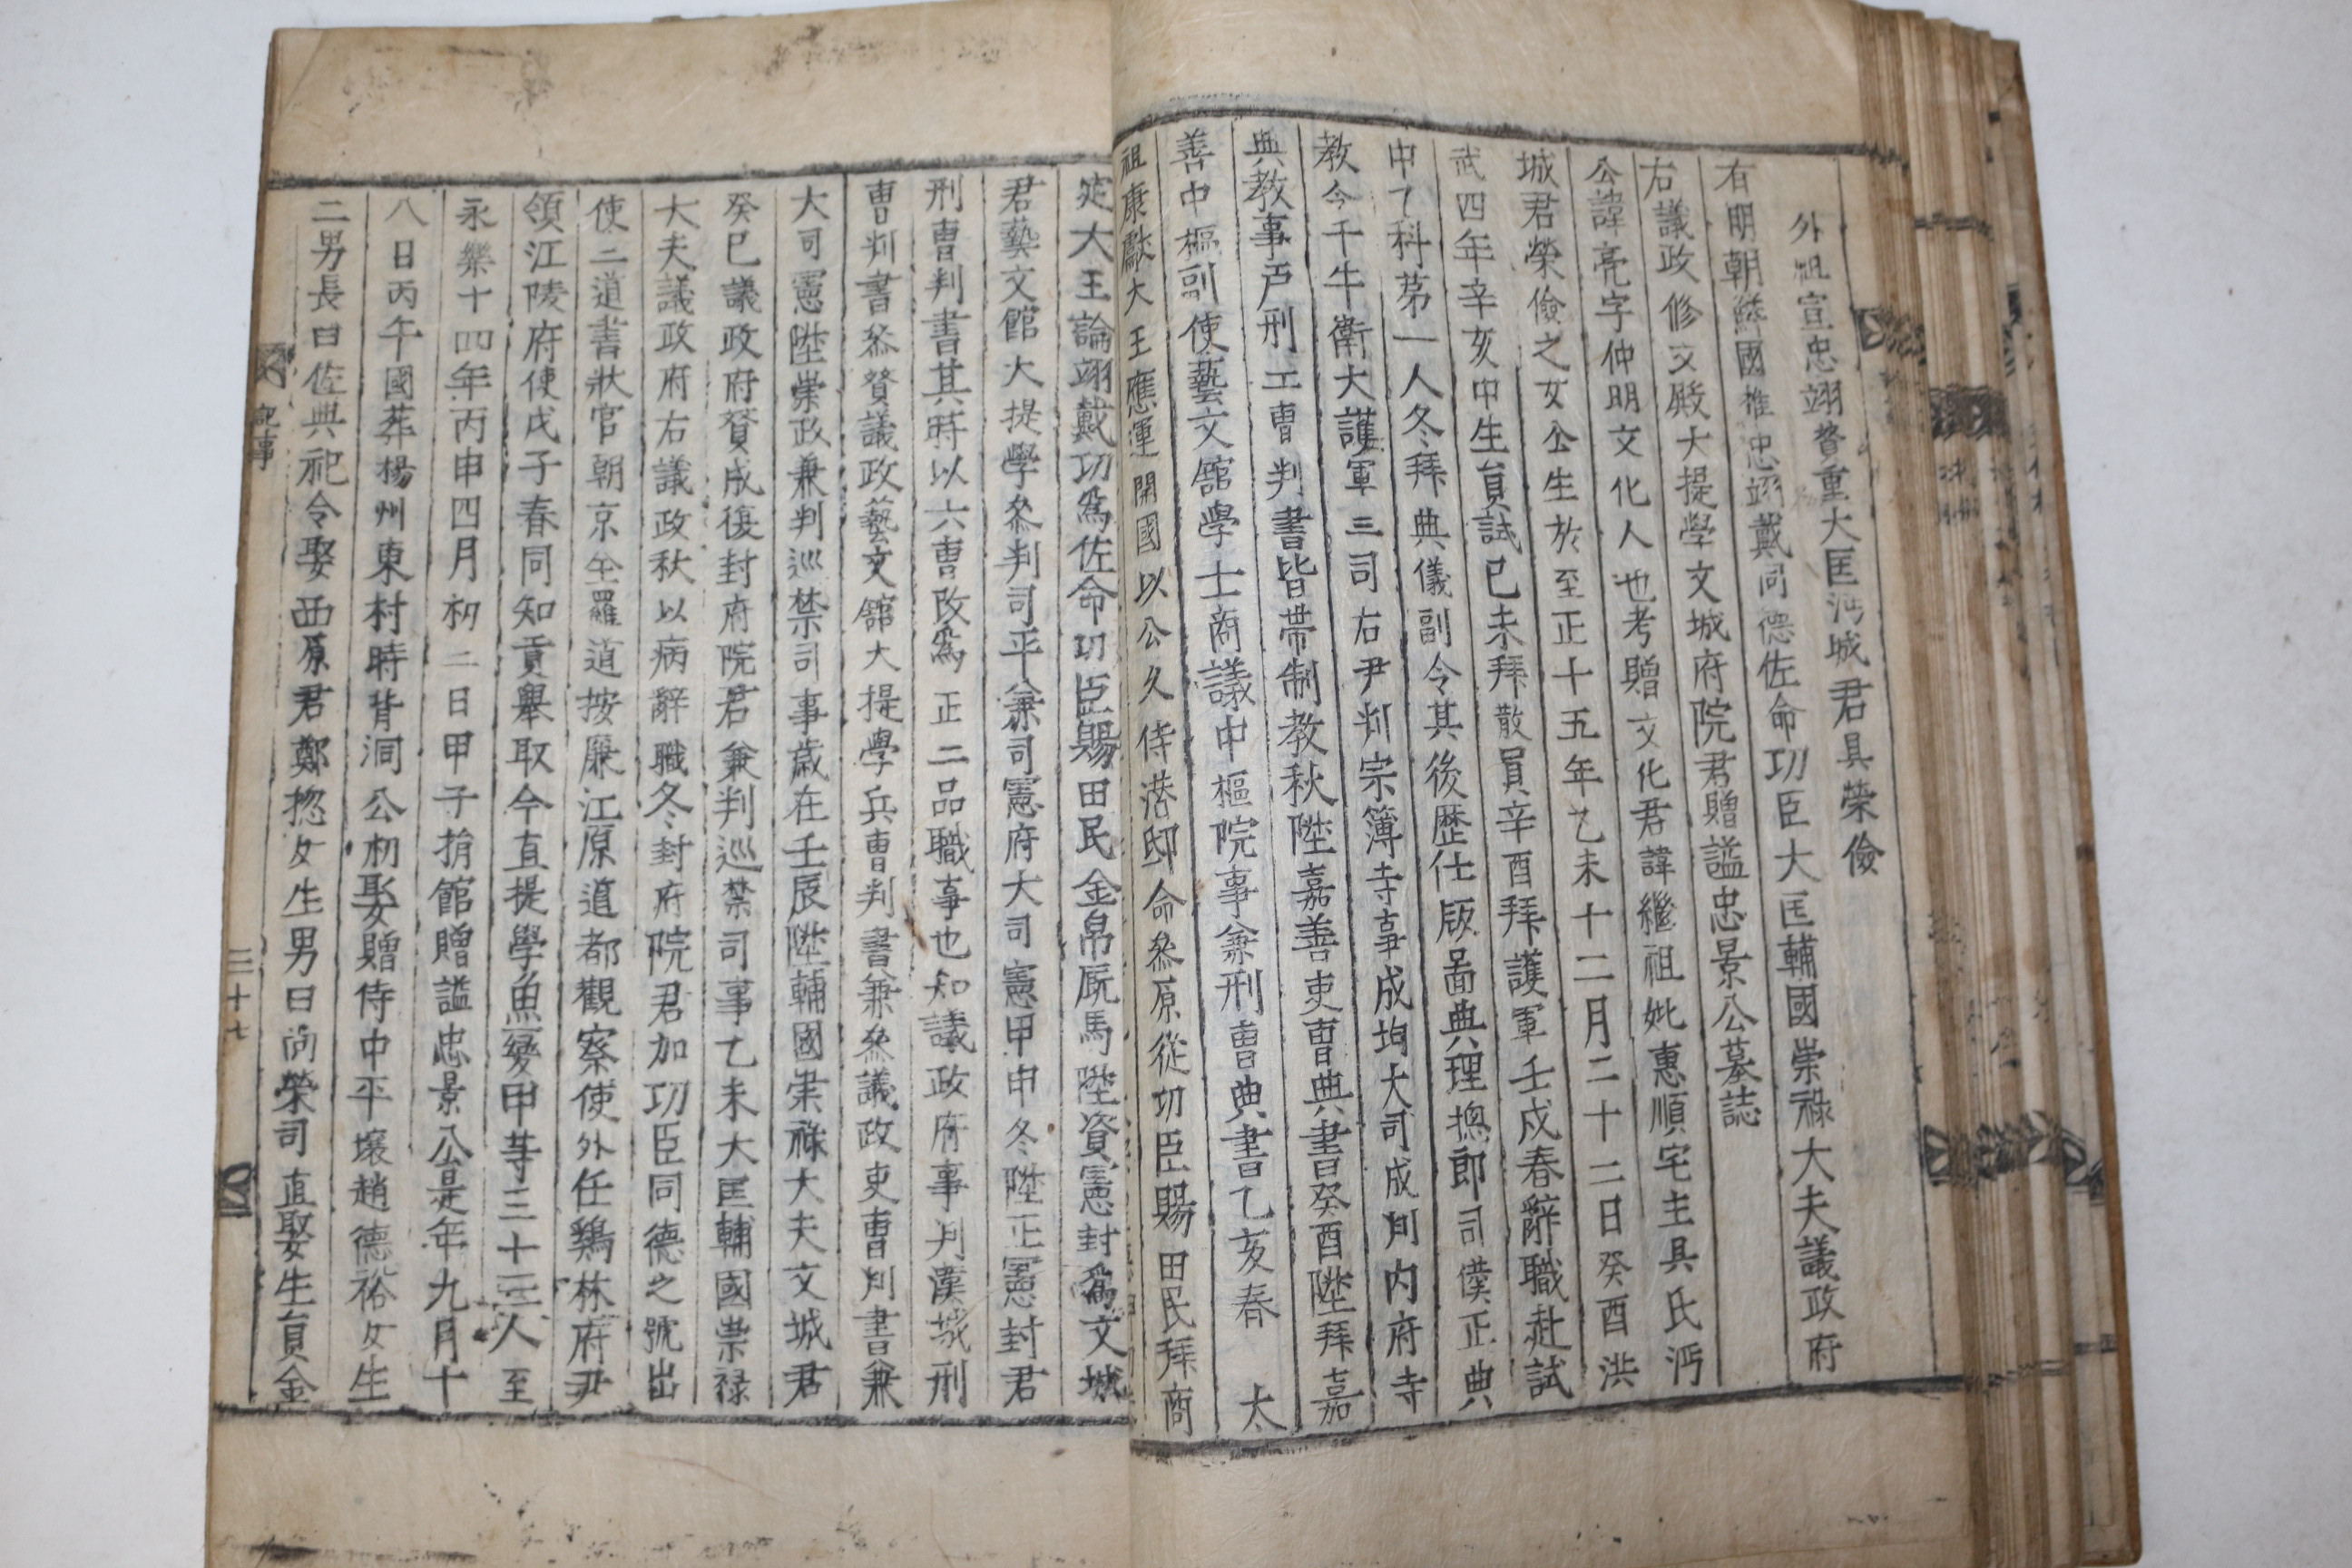 外祖宣忠翊贊重大匡沔城君具榮儉
有明朝鮮國推忠翊戴同德佐命功臣大匡輔國崇祿大夫議政府
右議政修文殿大提學文城府院君贈謚忠景公墓誌
公諱亮字仲明文化人也考贈文化君諱繼祖妣惠順宅主具氏沔
城君榮儉之女公生於至正十五年乙未十二月二十二日癸酉洪
武四年辛亥中生員試己未拜散員辛酉拜護軍壬戌春辭職赴試
中乙科苐一人冬拜典儀副令其後歷仕版啚典理摠郎司僕正典
教令千牛衛大護軍三司右尹判宗簿寺事成均大司成判内府寺
典教事戸刑工曹判書皆帶制教秋陞嘉善吏曹典書癸酉陞拜嘉
善中樞副使藝文舘學士商議中樞院事兼刑曹典書乙亥春 太
祖康獻大王應運開國以公久侍潛邸命叅原從功臣賜田民拜商
定大王論翊戴功爲佐命功臣賜田民金帛厩馬陞資憲封爲文城
君藝文館大提學叅判司平兼司憲府大司憲甲申冬陞正憲封君
刑曹判書其時以六曹改爲正二品職事也知議政府事判漢城刑
曹判書叅贊議政藝文舘大提學兵曹判書兼叅議政吏曹判書兼
大司憲陞崇政兼判巡禁司事歲在壬辰陞輔國崇祿大夫文城君
癸巳議政府贊成復封府院君兼判巡禁司事乙未大匡輔國崇祿
大夫議政府右議政秋以病辭職冬封府院君加功臣同德之號出
使二道書狀官朝京全羅道按廉江原道都觀察使外任鷄林府尹
領江陵府使戊子春同知貢舉取今直提學魚變甲等三十三人至
永樂十四年丙申四月初二日甲子捐館贈謚忠景公是年九月十
八日丙午國葬楊州東村時背洞公初娶贈侍中平壤趙德裕女生
二男長曰佐典祀令娶西原君鄭摠女生男曰尚榮司直娶生員金
記事
三十七